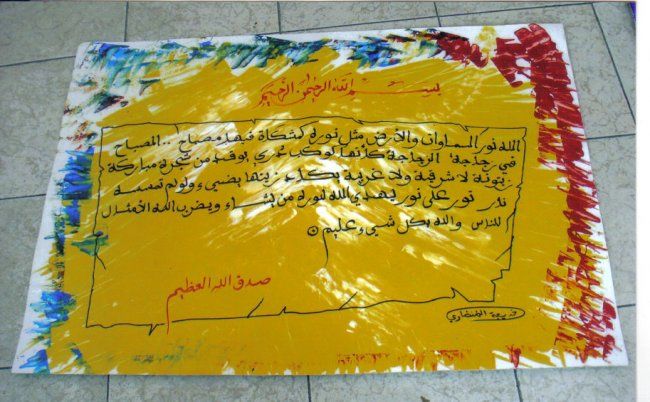 بسم الله الرحمن الرحيم
الله نور السماوات والأرض مثل نوره كمشكاة فيها مصباح .. المصباح
في زجاجة الزجاجة كأنها كوكب دري يوقد من شجرة مباركة
زيتونة لا شرقية ولا غربية يكاد زيتها يضيء ولو لم تمسسه
نار نور على نور يهدي الله لنوره من يشاء ويضرب الله الأمثال
للناس والله بكل شيء عليم
صدق الله العظيم
خديجة